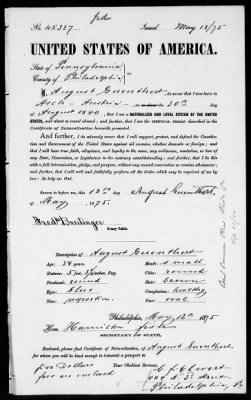 No. 45337 Issued May 13/75
UNITED STATES OF AMERICA.
State of Pennsylvania
County of Philadelphia
I, August Guenthert, do swear that I was born in
Austria, on the 30th day
of August 1840, that I am a NATURALIZED AND LOYAL CITIZEN OF THE UNITED
STATES, and about to travel abroad; and further, that I am the IDENTICAL PERSON described in the
Certificate of Naturalization herewith presented.
And further, I do solemnly swear that I will support, protect, and defend the Constitu-
tion and Government of the United States against all enemies, whether domestic or foreign; and
that I will bear true faith, allegiance, and loyalty to the same, any ordinance, resolution, or law of
any State, Convention, or Legislature to the contrary notwithstanding; and further, that I do this
with a full determination, pledge, and purpose, without any mental reservation or evasion whatsoever;
and further, that I will well and faithfully perform all the duties which may be required of me by
law: So help me God.
Sworn to before me, this 12th day August Guenthert.
of May, 1875.
Notary Public.
Description of August Guenthert
Age: 34 years Mouth: small
Stature: 5 feet, inches, Eng. Chin: round
Forehead: round Hair: brown
Eyes: blue Complexion: healthy
Nose: Face: oval
Philadelphia, May 12th 1875
Hon. Hamilton Fish
SECRETARY OF STATE,
Enclosed, please find Certificate of Naturalization of August Guenthert
for whom you will be kind enough to transmit a passport to
Your Obedient Servant,
Five Dollars
fee are enclosed
Philadelphia, Pa